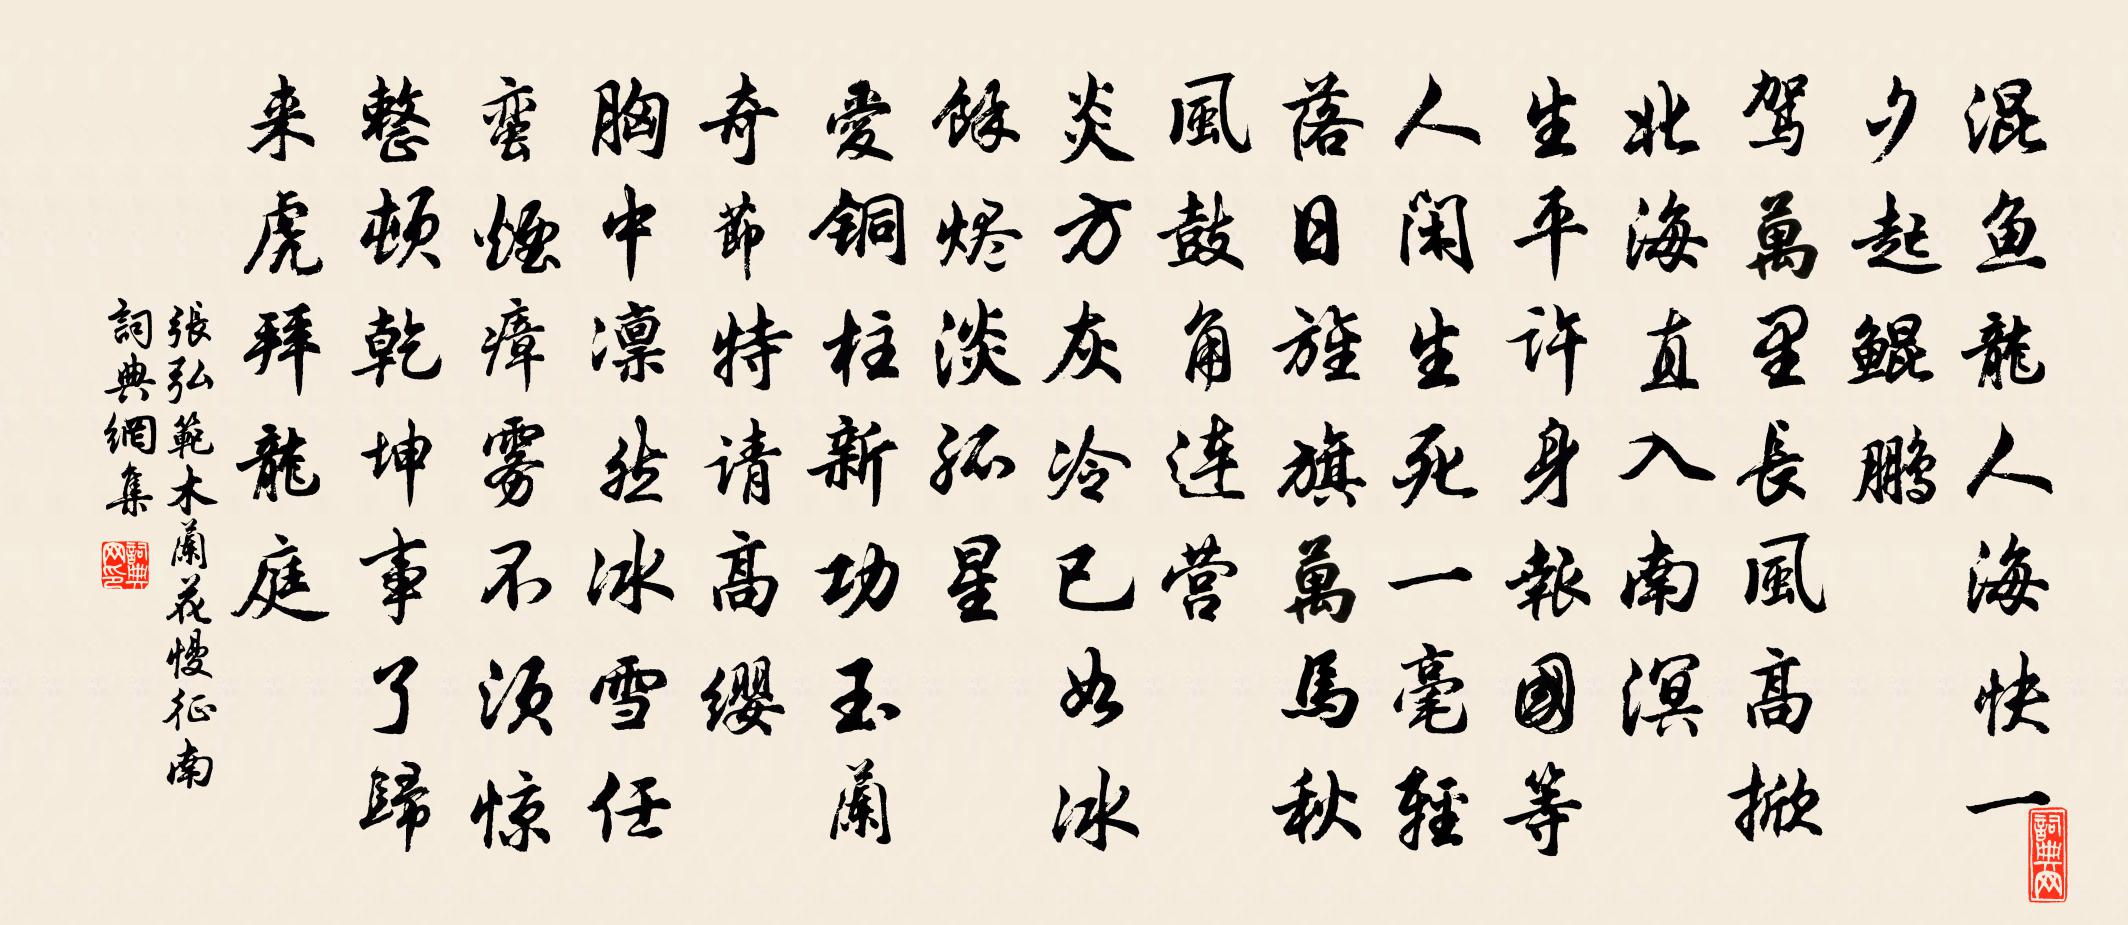 混鱼龍人海快一
夕起鲲鹏
驾萬里長風高掀
北海直入南溟
生平许身報國等
人闲生死一毫輕
落日旌旗萬馬秋
風鼓角連营
炎方灰冷已如冰
餘烬淡孤星
愛铜柱新功玉蘭
奇節特请高缨
胸中凛然冰雪任
蛮煙瘴雾不须惊
整顿乾坤事了歸
来虎拜龍庭
張弘範木蘭花慢征南
詞典網集
詞典网印
詞典网